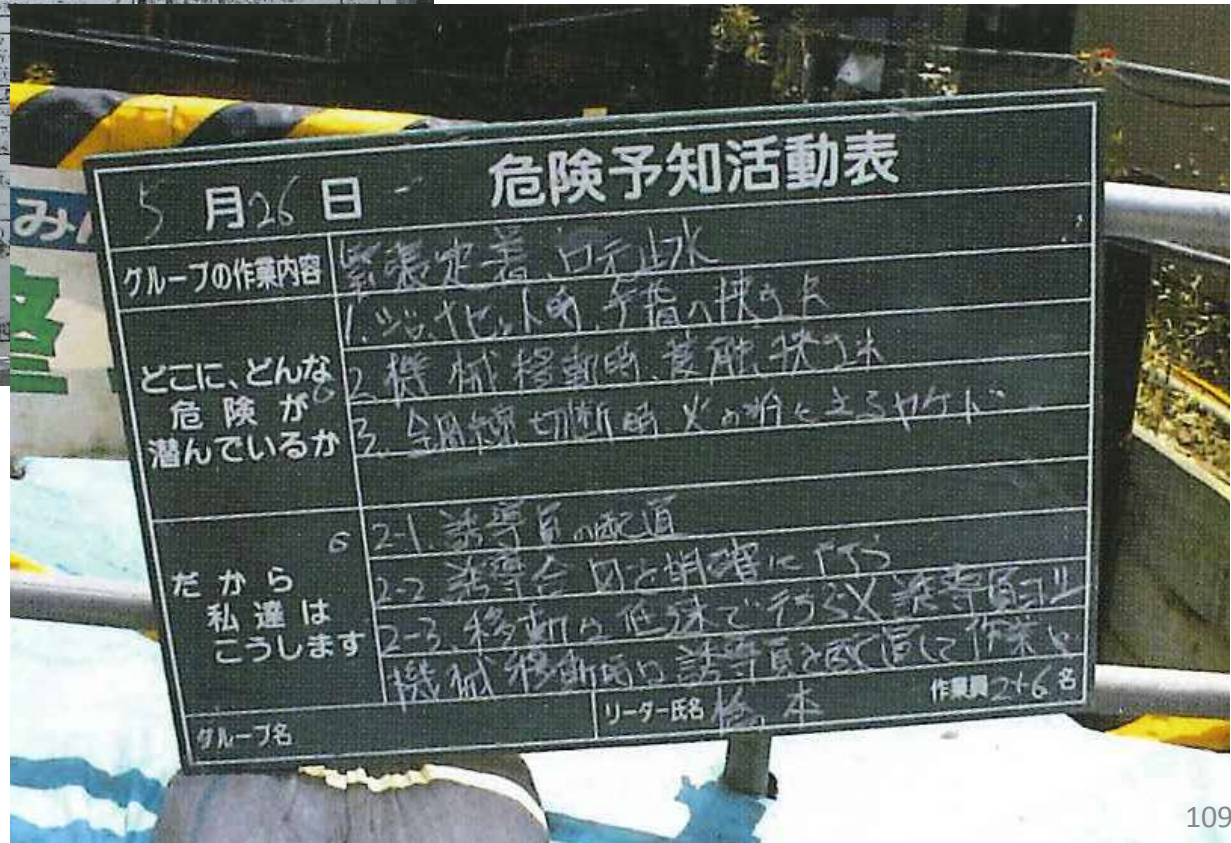 危険予知活動表
5月26日
グループの作業内容 緊張定着、口元止水
どこに、どんな危険が潜んでいるか
1. ジャッキセット時、手指の挟まれ
2. 機械移動時、接触、挟まれ
3. 鋼線切断時 火の粉によるヤケド
だから私達はこうします
2-1. 誘導員の配置
2-2 誘導合図を明確に行う
2-3. 移動は低速で行う
機械移動時は誘導員を配置して作業
グループ名
リーダー氏名 本
作業員2+6名
み
109